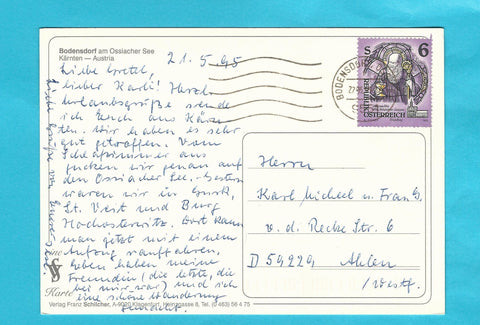 Bodensdorf am Ossiacher See
Kärnten — Austria
21.5.95
Liebe Gretel,
lieber Karli! Herzl.
Urlaubsgrüße sende
ich Euch aus Kärn-
ten. Wir haben es sehr
gut getroffen. Vom
Schlafzimmer aus
gucken wir genau auf
den Ossiacher See. Gestern
waren wir in Gurk,
St. Veit und Burg
Hochosterwitz. Dort kann
man jetzt mit einem
Aufzug rauffahren.
Eben haben meine
Freundin (die letzte, die
bei mir war) und ich
eine schöne Wanderung
gemacht.
Liebe Grüße von
Karte
Verlag Franz Schilcher, A-9020 Klagenfurt, Tel. (0 463) 56 4 75
BODENSDORF
S 6
REPUBLIK
ÖSTERREICH
Herrn
Karl Michael u. Frau G.
v. d. Recke Str. 6
D 59229 Ahlen
/Westf.